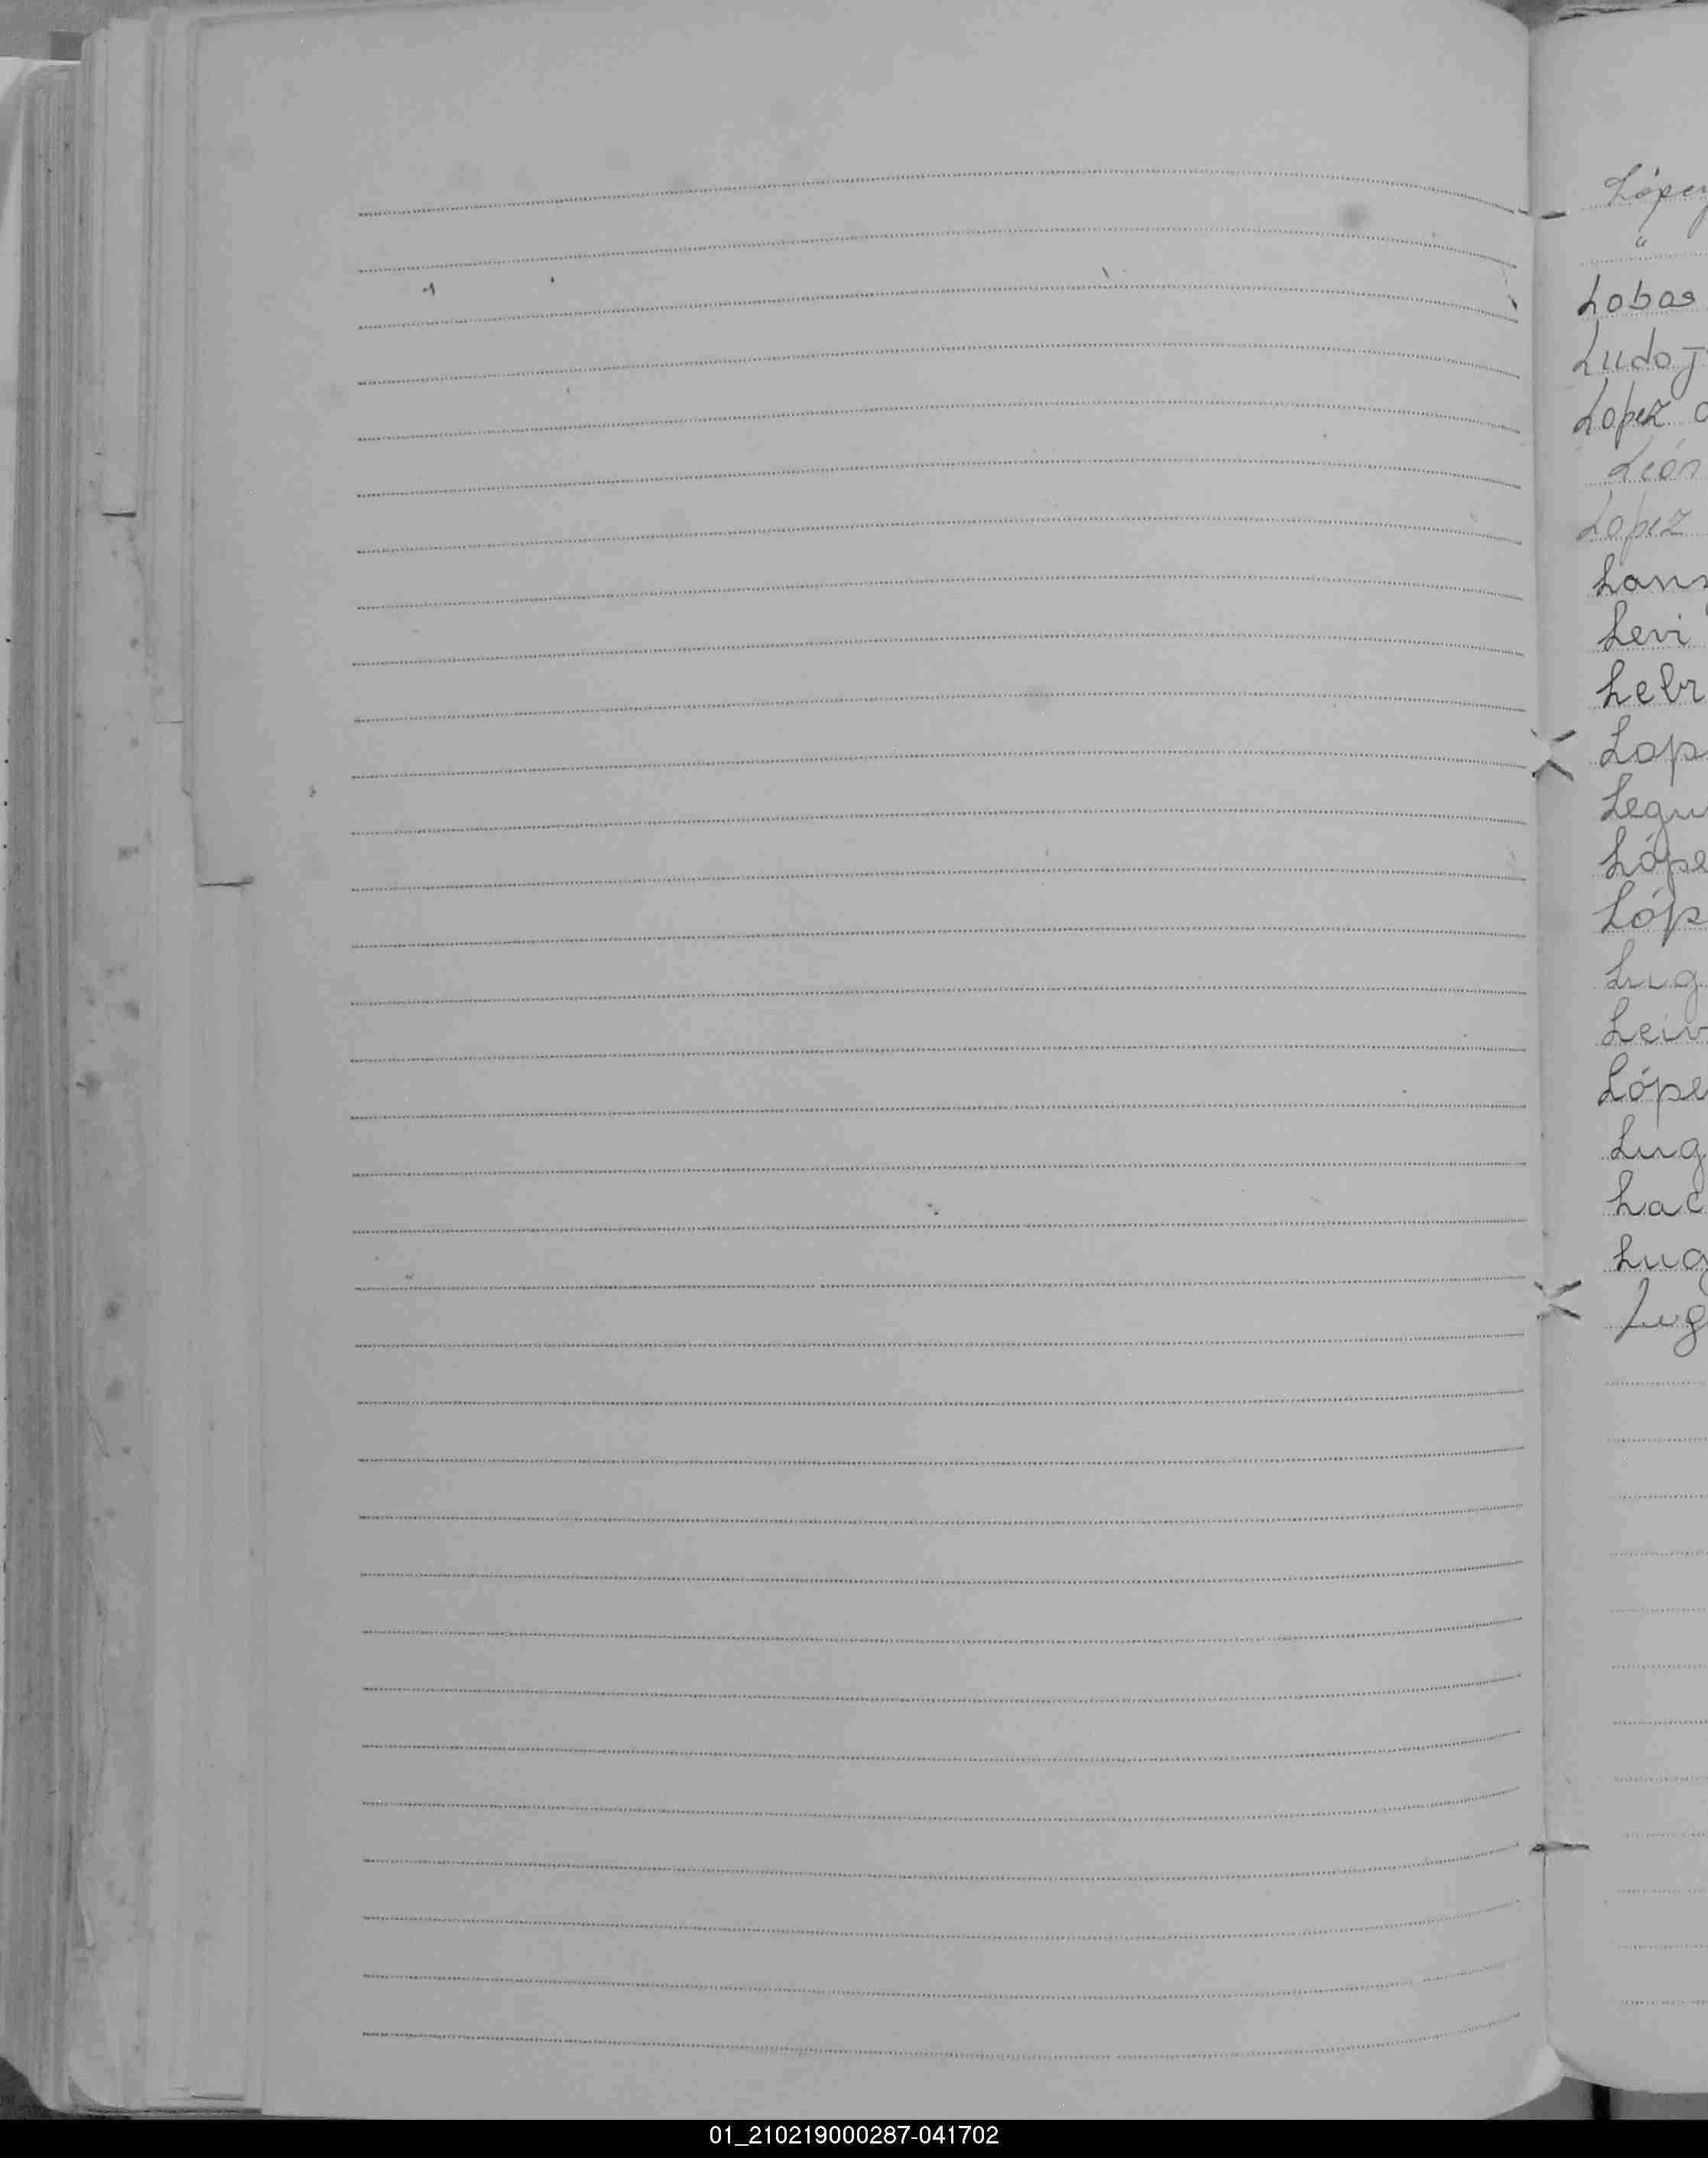 López
"
Lobos
Ludo
Lopez
León
Lopez
Lans
Levi
Lebr
Lop
Legu
Lópe
Lóp
Lug
Leiv
Lópe
Lug
Lac
Lug
Lug
01_210219000287-041702